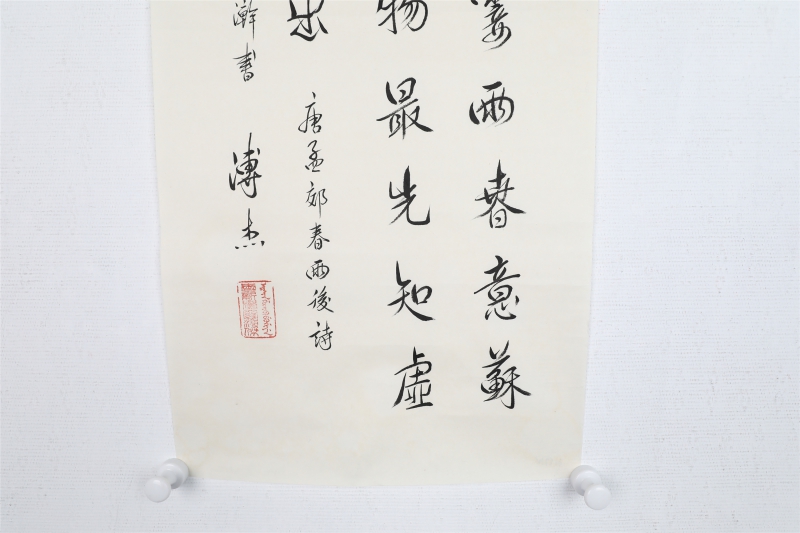 霎雨春意蘇
物最先知虛
出
唐孟郊春雨後詩
書
溥杰